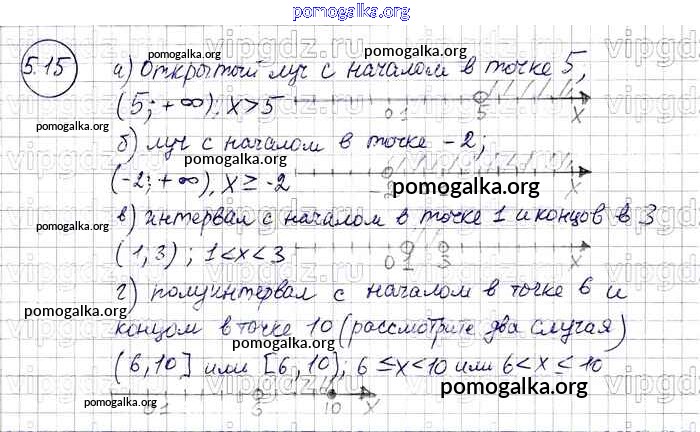 pomogalka.org
5.15
а) Открытый луч с началом в точке 5,
pomogalka.org
(5; +∞), x > 5
0 1 5 x
pomogalka.org
б) луч с началом в точке -2;
pomogalka.org
(-2; +∞), x ≥ -2
-2 x
pomogalka.org
в) интервал с началом в точке 1 и концов в 3
pomogalka.org
(1, 3) ; 1 < x < 3
0 1 3 x
г) полуинтервал с началом в точке 6 и
pomogalka.org
концом в точке 10 (рассмотрите два случая)
pomogalka.org
(6, 10] или [6, 10), 6 ≤ x < 10 или 6 < x ≤ 10
pomogalka.org
0 1 10 x
pomogalka.org